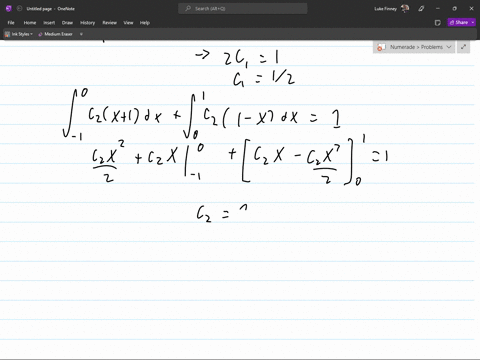 Untitled page - OneNote
Search (Alt+Q)
Luke Finney
File Home Insert Draw History Review View Help Share
Ink Styles Medium Eraser
Numerade > Problems
→ 2C₁ = 1
C₁ = 1/2
∫₋₁⁰ C₂(x+1) dx + ∫₀¹ C₂(1-x) dx = 1
C₂x²/2 + C₂x |₋₁⁰ + [C₂x - C₂x²/2]₀¹ = 1
C₂ =